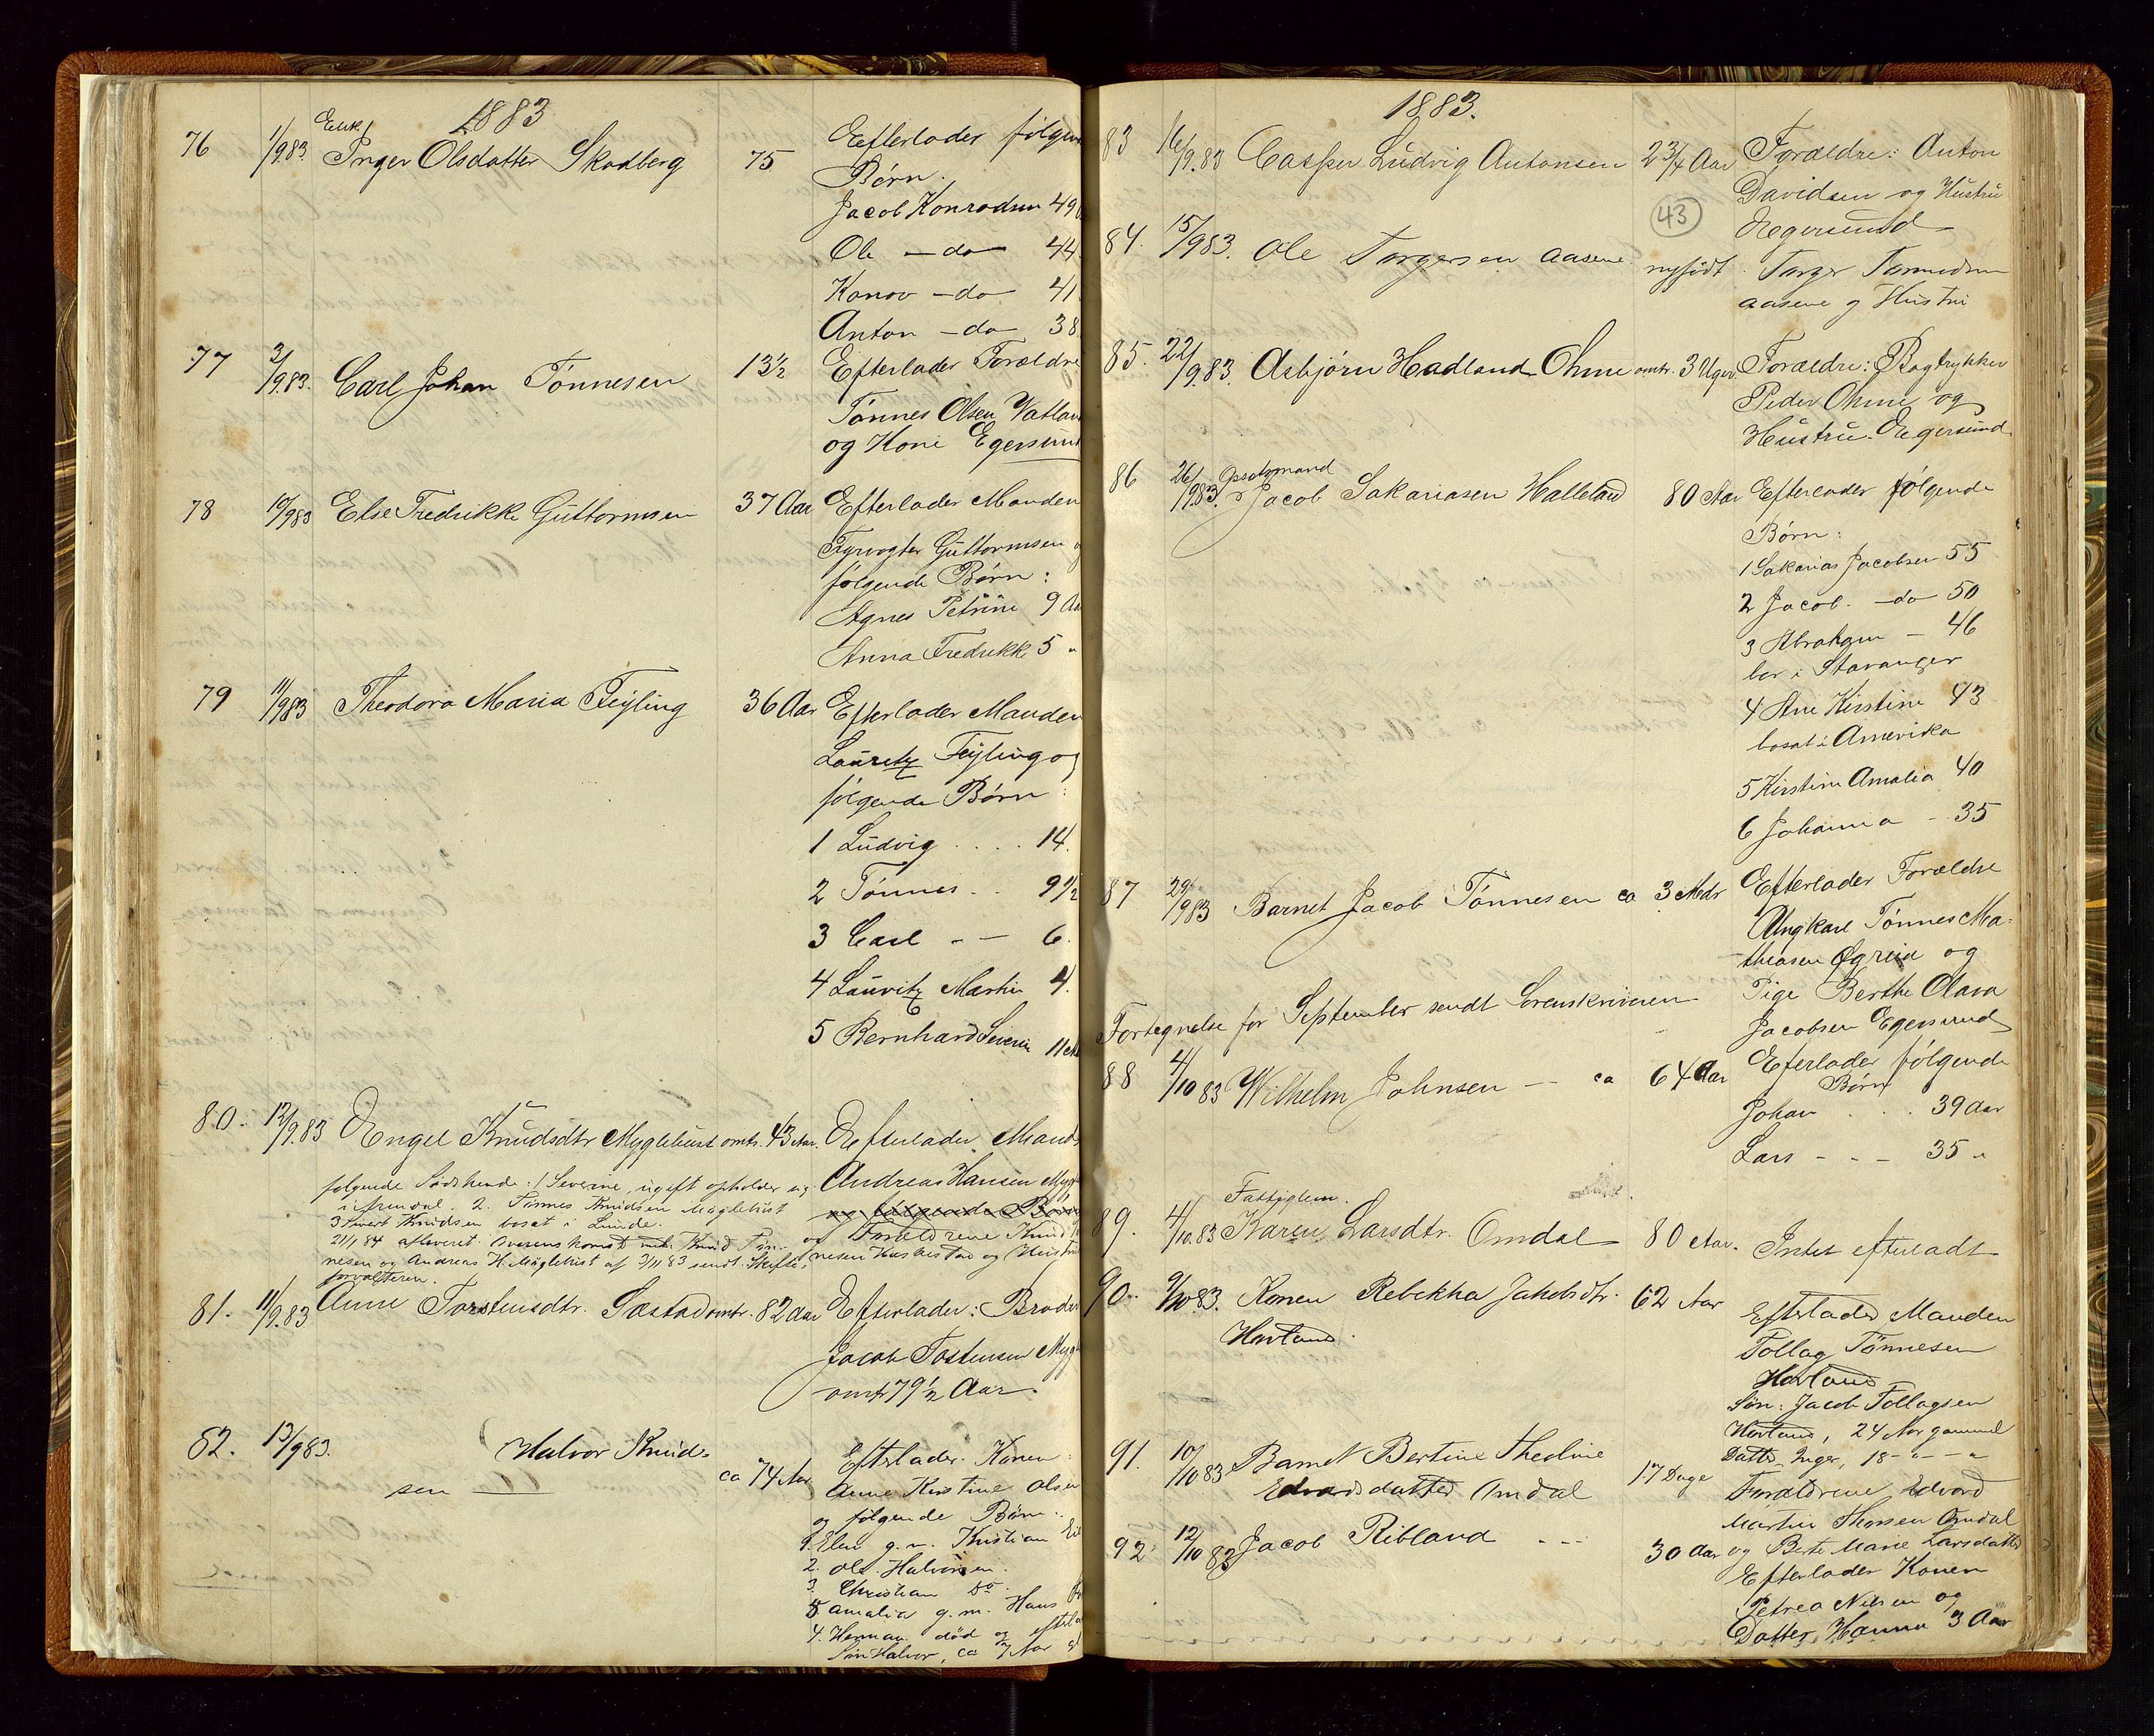 1883
76 1/9.83. Enk. Inger Olsdatter Skadberg 75 Efterlader følgen
Børn.
Jacob Konradsen 49
Ole — do — 44.
Konov — do — 41
Anton — do — 38
77 3/9.83. Carl Johan Tønnesen 13½ Efterlader Forældre
Tønnes Olsen Vatlan
og Kone Egersund
78 10/9 83 Else Fredrikke Guttormsen 37 Aar Efterlader Manden
Fyrvogter Guttormsen o
følgende Børn:
Agnes Petrine 9 Aa
Anna Fredrikke 5 "
79 11/9 83 Theodora Maria Feyling 36 Aar Efterlader Manden
Lauritz Feyling og
følgende Børn:
1 Ludvig .... 14.
2 Tønnes .. 9½
3 Carl - — 6.
4 Lauritz Martin 4.
5 Bernhard Severin 11
80. 12/9.83 Engel Knudsdtr Myglehust omtr. 43 Aar. Efterlader Mand
Andreas Hansen Mygl
og følgende Børn
og Forældrene Knud
nesen Huskestad og Hustru
følgende Sødskende: 1 Severine, ugift opholder sig
i Arendal. 2. Tønnes Knudsen Møglehust
3 Sivert Knudsen bosat i Lunde.
21/1 84 afleveret Overenskomst mell. Knud Tøn-
nesen og Andreas H. Møglehust af 3/11 83 sendt Skifte-
forvalteren.
81. 11/9.83 Anne Torstensdtr. Sæstad omtr. 82 Aar Efterlader: Broder
Jacob Tostensen Mygl
omtr 79½ Aar.
82. 13/9 83. Halvor Knud-
sen — ca 74 Aar Efterlader Konen
Anne Kirstine Olsen
og følgende Børn.
1. Elen g. m. Kristian
2. Ole Halvorsen.
3. Christian do
5 Amalia g. m. Hans
4. Herman død og efterla
Søn Halvor, ca 7 Aar
1883.
83 16/9.83 Casper Ludvig Antonsen 2¾ Aar Forældre: Anton
Davidsen og Hustru
Egersund
43
84. 15/9 83. Ole Torgersen Aasene nyfødt. Torger Tormodsen
Aasene og Hustru
85. 22/9.83. Asbjørn Hadland Ohme omtr. 3 Uger. Forældre: Bogtrykker
Peder Ohme og
Hustru. Egersund
86 26/9 83. Opsidsmand Jacob Sakariasen Halleland 80 Aar Efterlader følgende
Børn:
1 Sakarias Jacobsen 55
2 Jacob. — do 50
3 Abraham — 46
bor i Stavanger
4 Ane Kirstine 43
bosat i Amerika
5 Kirstine Amalia 40
6 Johanna - 35
87 29/9 83 Barnet Jacob Tønnesen ca 3 Mdr Efterlader Forældre
Ungkarl Tønnes Ma-
thiasen Øgreid og
Pige Berthe Olava
Jacobsen Egersund
Fortegnelse for September sendt Sorenskriveren
88 4/10 83 Wilhelm Johnsen — ca 64 Aar Efterlader følgende
Børn
Johan . . . 39 Aar
Lars - - - 35 "
89. 4/10.83 Fattiglem. Karen Larsdtr. Omdal 80 Aar. Intet efterladt
90. 9/10 83. Konen Rebekka Jakobsdtr. 62 Aar Efterlader Manden
Hovland. Tollag Tønnesen
Hovland
Søn: Jacob Tollagsen
Hovland, 24 Aar gammel
Datter Inger, 18 - " - "
91. 10/10 83 Barnet Bertine Theoline
Edvardsdatter Omdal 17 Dage Forældrene Edvard
Martin Thorsen Omdal
og Berte Marie Larsdatter
92 12/10 83 Jacob Ribland - - - 30 Aar Efterlader Konen
Petrea Nilsen og
Datter Hanna 3 Aar